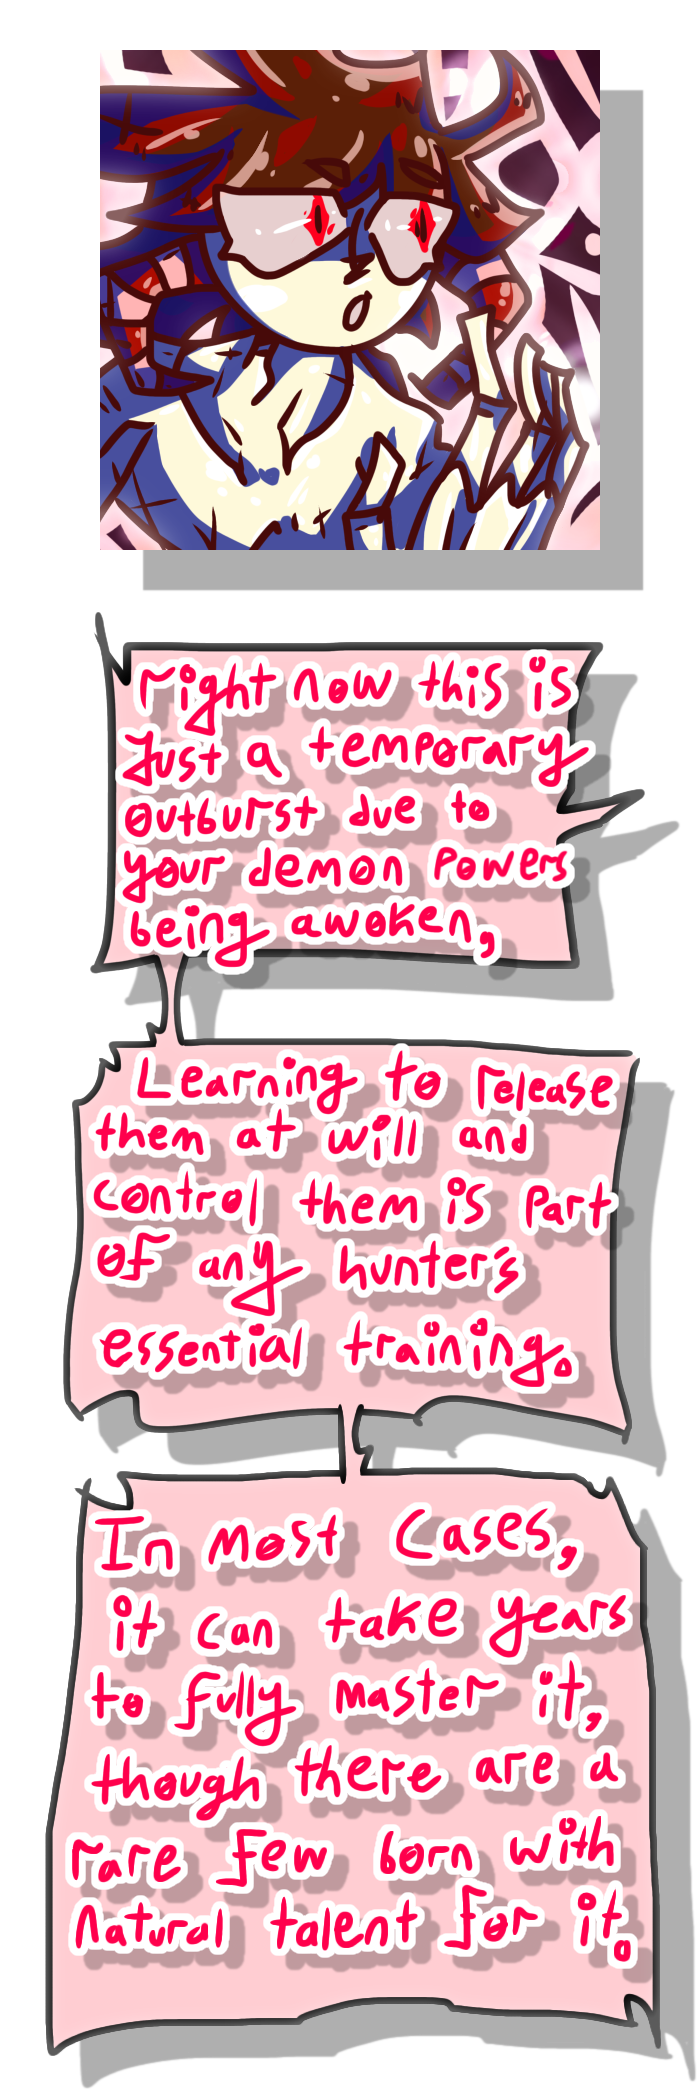 right now this is
Just a temporary
outburst due to
your demon powers
being awoken,
Learning to release
them at will and
control them is part
of any hunter's
essential training.
In most cases,
it can take years
to fully master it,
though there are a
rare few born with
natural talent for it.